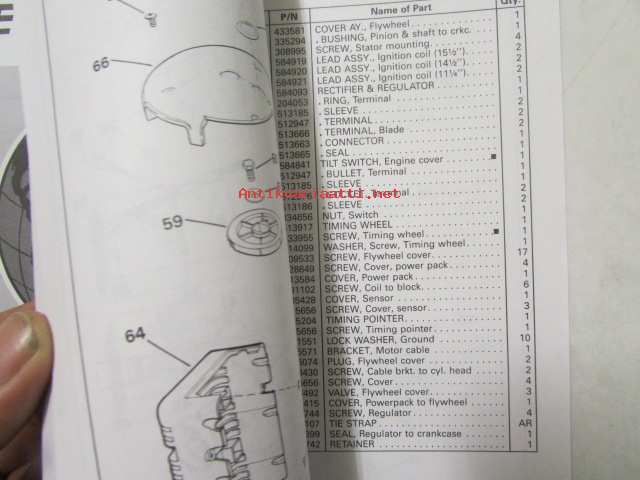 66
59
64
P/N Name of Part Qty.
433581 COVER AY., Flywheel 1
335294 . BUSHING, Pinion & shaft to crkc. 1
308995 SCREW, Stator mounting. 4
584919 LEAD ASSY., Ignition coil (15½") 2
584920 LEAD ASSY., Ignition coil (14½") 2
584921 LEAD ASSY., Ignition coil (11⅛") 2
584093 RECTIFIER & REGULATOR 1
204053 . RING, Terminal
513185 . SLEEVE
512947 . TERMINAL
513666 . TERMINAL, Blade
513663 . CONNECTOR
513665 . SEAL
584841 TILT SWITCH, Engine cover
512947 . BULLET, Terminal
513185 . SLEEVE
Terminal
. SLEEVE
NUT, Switch
TIMING WHEEL
SCREW, Timing wheel
WASHER, Screw, Timing wheel
SCREW, Flywheel cover 17
SCREW, Cover, power pack 4
COVER, Power pack 1
SCREW, Coil to block 6
COVER, Sensor 1
SCREW, Cover, sensor 3
TIMING POINTER 1
SCREW, Timing pointer 1
LOCK WASHER, Ground 10
BRACKET, Motor cable 1
PLUG, Flywheel cover 2
SCREW, Cable brkt. to cyl. head 2
SCREW, Cover 4
VALVE, Flywheel cover 3
COVER, Powerpack to flywheel 1
SCREW, Regulator 4
TIE STRAP AR
SEAL, Regulator to crankcase 1
RETAINER 1
Antikvariaatti.net